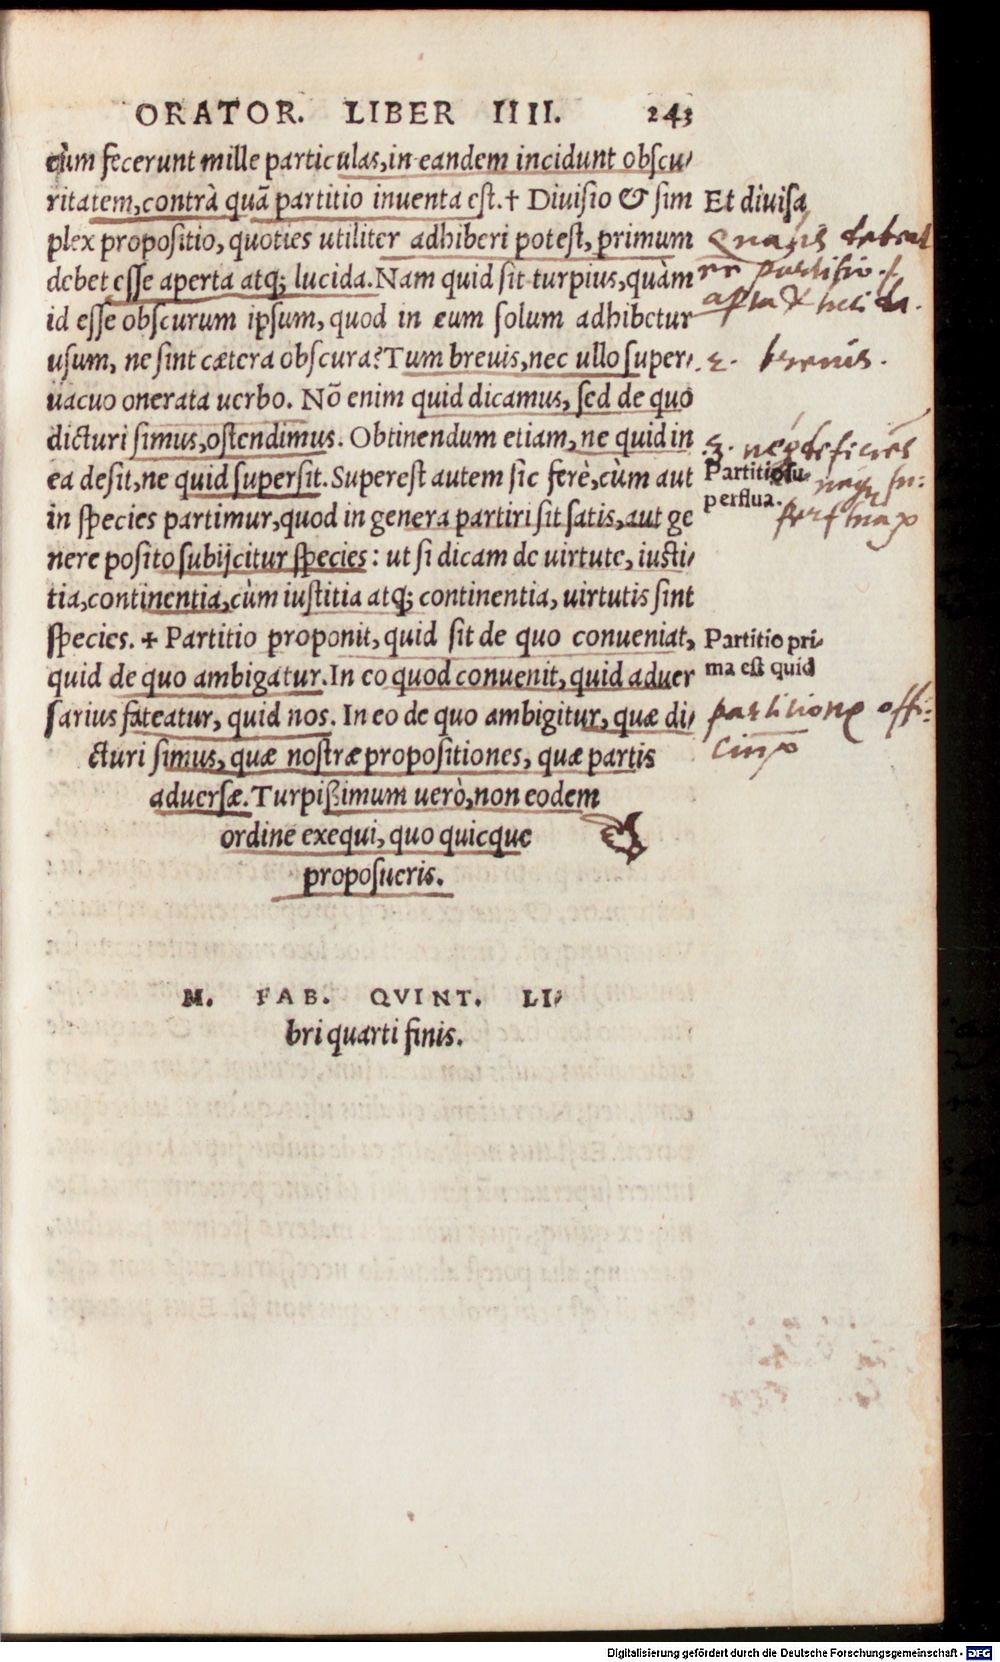 ORATOR. LIBER IIII. 243
cùm fecerunt mille particulas, in eandem incidunt obscu-
ritatem, contrà quã partitio inuenta est. † Diuisio & sim
plex propositio, quoties utiliter adhiberi potest, primum
debet esse aperta atq; lucida. Nam quid sit turpius, quàm
id esse obscurum ipsum, quod in eum solum adhibetur
usum, ne sint cætera obscura? Tum breuis, nec ullo super-
uacuo onerata uerbo. Nõ enim quid dicamus, sed de quo
dicturi simus, ostendimus. Obtinendum etiam, ne quid in
ea desit, ne quid supersit. Superest autem sic ferè, cùm aut
in species partimur, quod in genera partiri sit satis, aut ge
nere posito subijcitur species: ut si dicam de uirtute, iusti-
tia, continentia, cùm iustitia atq; continentia, uirtutis sint
species. ✝ Partitio proponit, quid sit de quo conueniat,
quid de quo ambigatur. In eo quod conuenit, quid aduer
sarius fateatur, quid nos. In eo de quo ambigitur, quæ di-
cturi simus, quæ nostræ propositiones, quæ partis
aduersæ. Turpißimum uerò, non eodem
ordine exequi, quo quicque
proposueris.
M. FAB. QVINT. LI-
bri quarti finis.
Et diuisa
Qualis debeat
partitio
aperta & lucida.
2. breuis.
3. deficiẽs
Partitio su-
perflua.
Partitio pri-
ma est quid
partitionis offi-
Digitalisierung gefördert durch die Deutsche Forschungsgemeinschaft - DFG